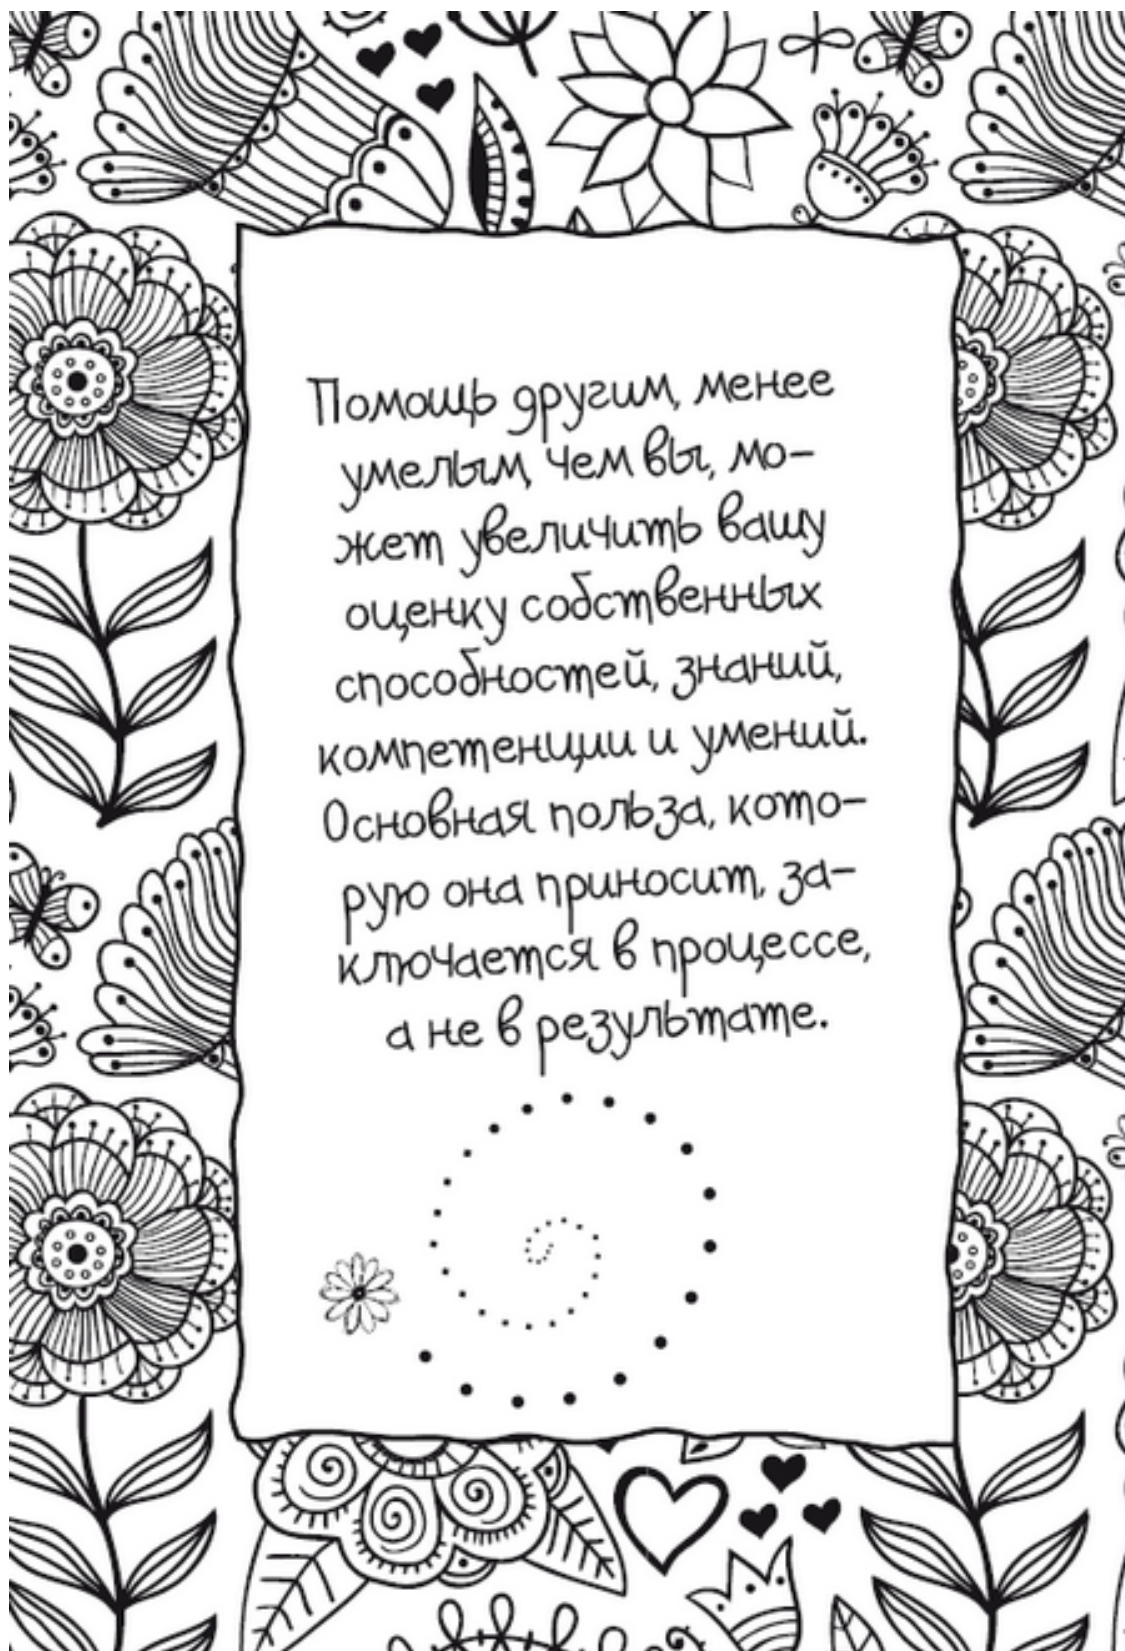 Помощь другим, менее
умелым, чем вы, мо-
жет увеличить вашу
оценку собственных
способностей, знаний,
компетенции и умений.
Основная польза, кото-
рую она приносит, за-
ключается в процессе,
а не в результате.